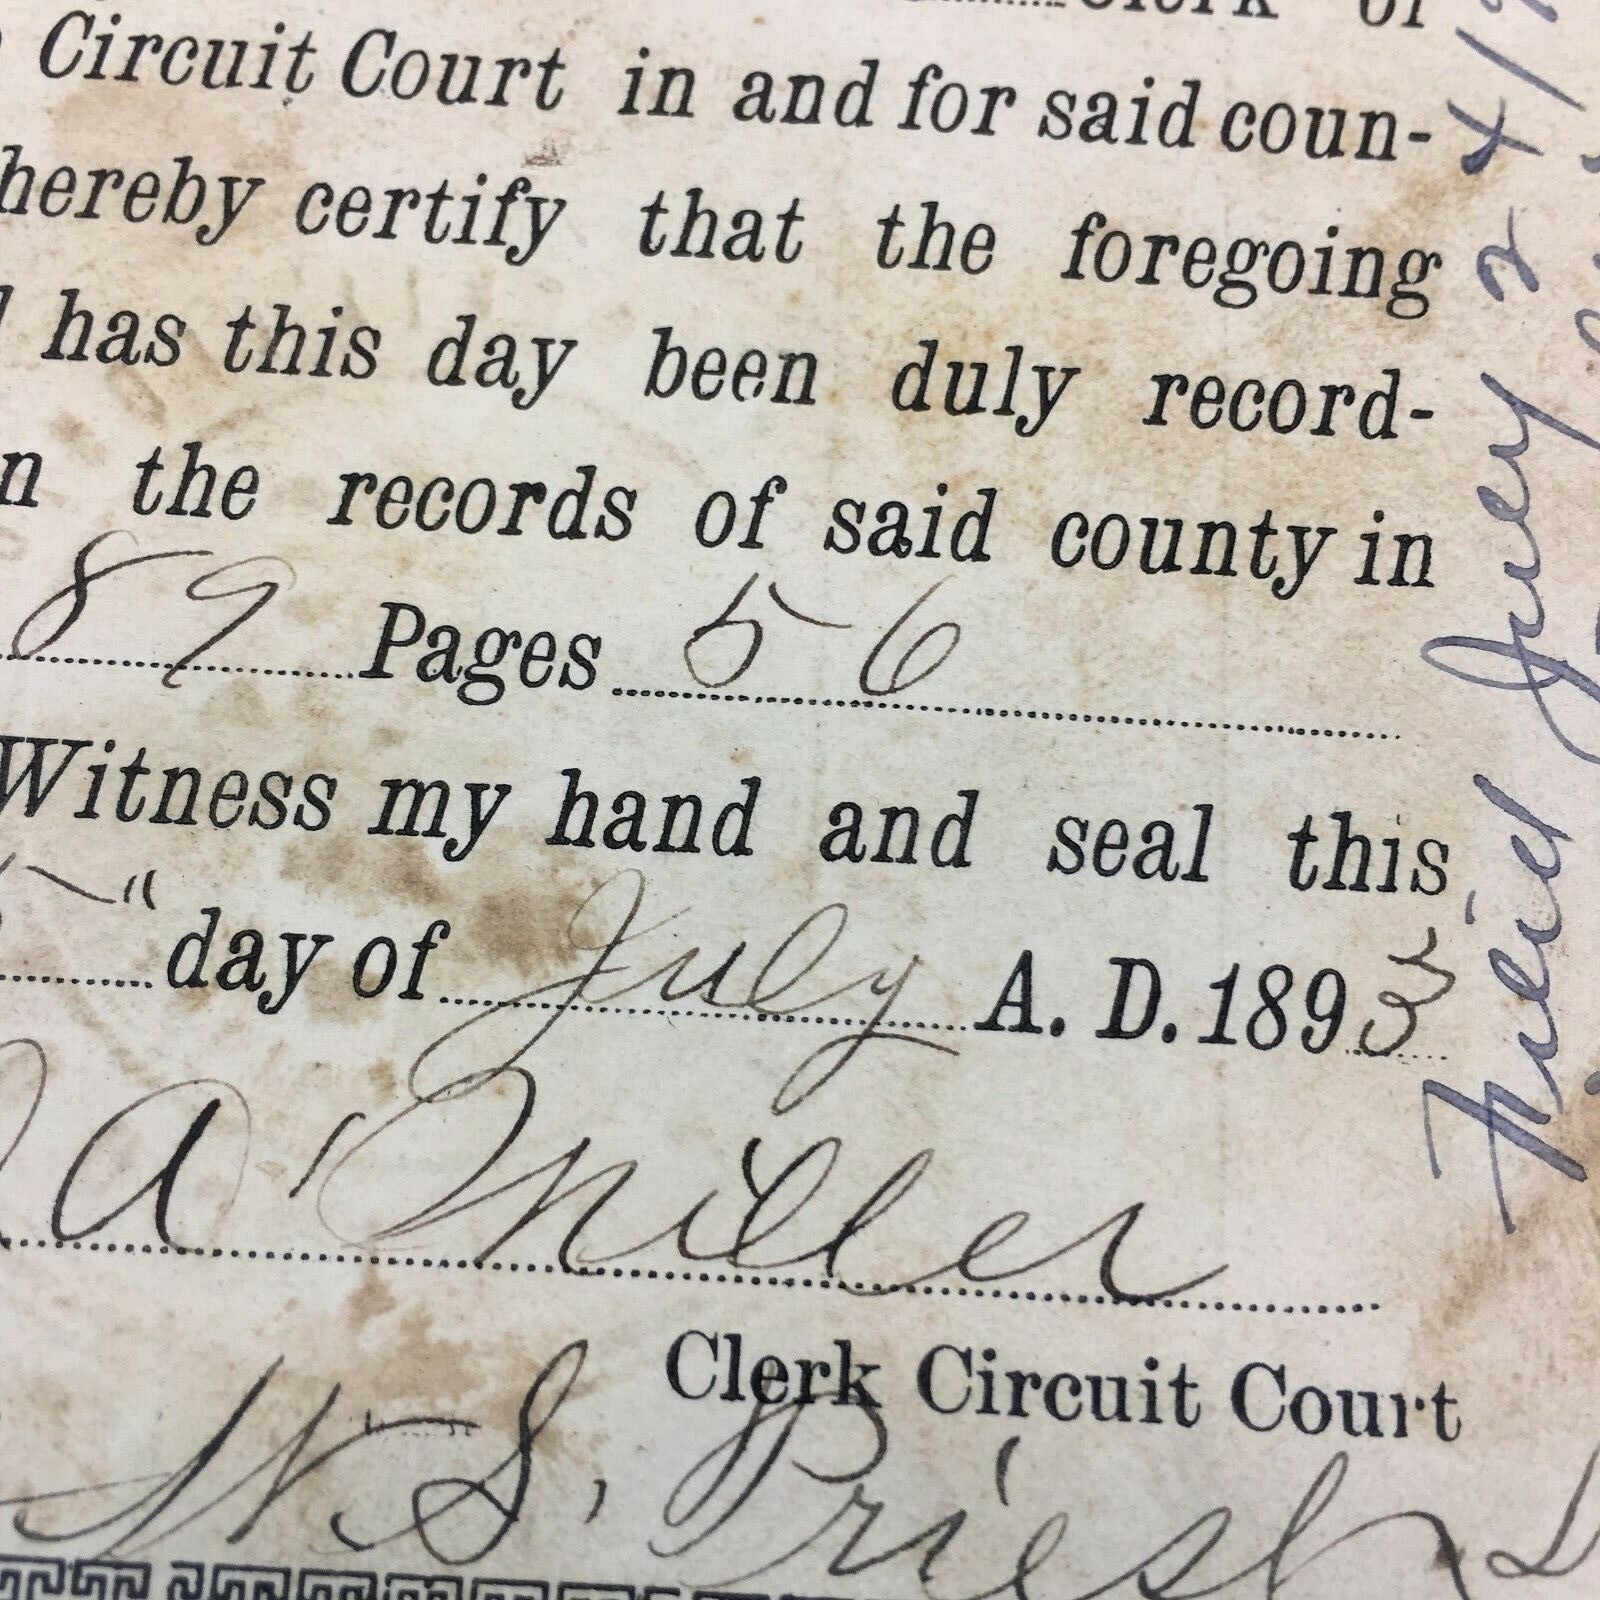 Clerk of
Circuit Court in and for said coun-
hereby certify that the foregoing
has this day been duly record-
n the records of said county in
89 Pages 56
Witness my hand and seal this
5" day of July A. D. 1893
A Miller
Clerk Circuit Court
W. S. Priest D
Filed July 24/